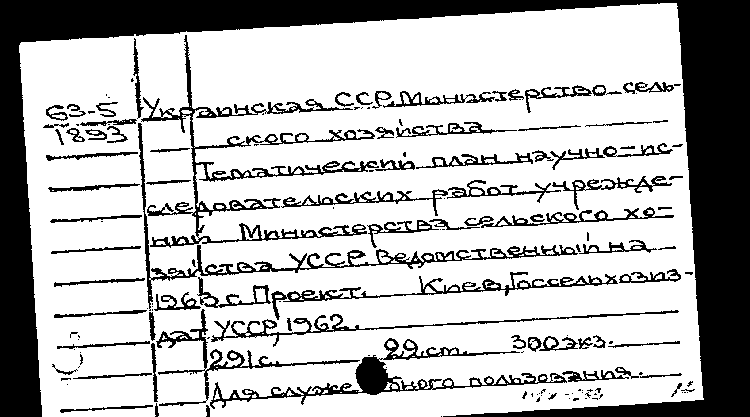 63-5 Украинская ССР. Министерство сель-
1893 ского хозяйства
Тематический план научно-ис-
следовательских работ учрежде-
ний Министерства сельского хо-
зяйства УССР. Ведомственный на
1963 г. Проект. Киев, Госсельхозиз-
дат УССР, 1962.
291 с. 29 см. 300 экз.
Для служебного пользования.